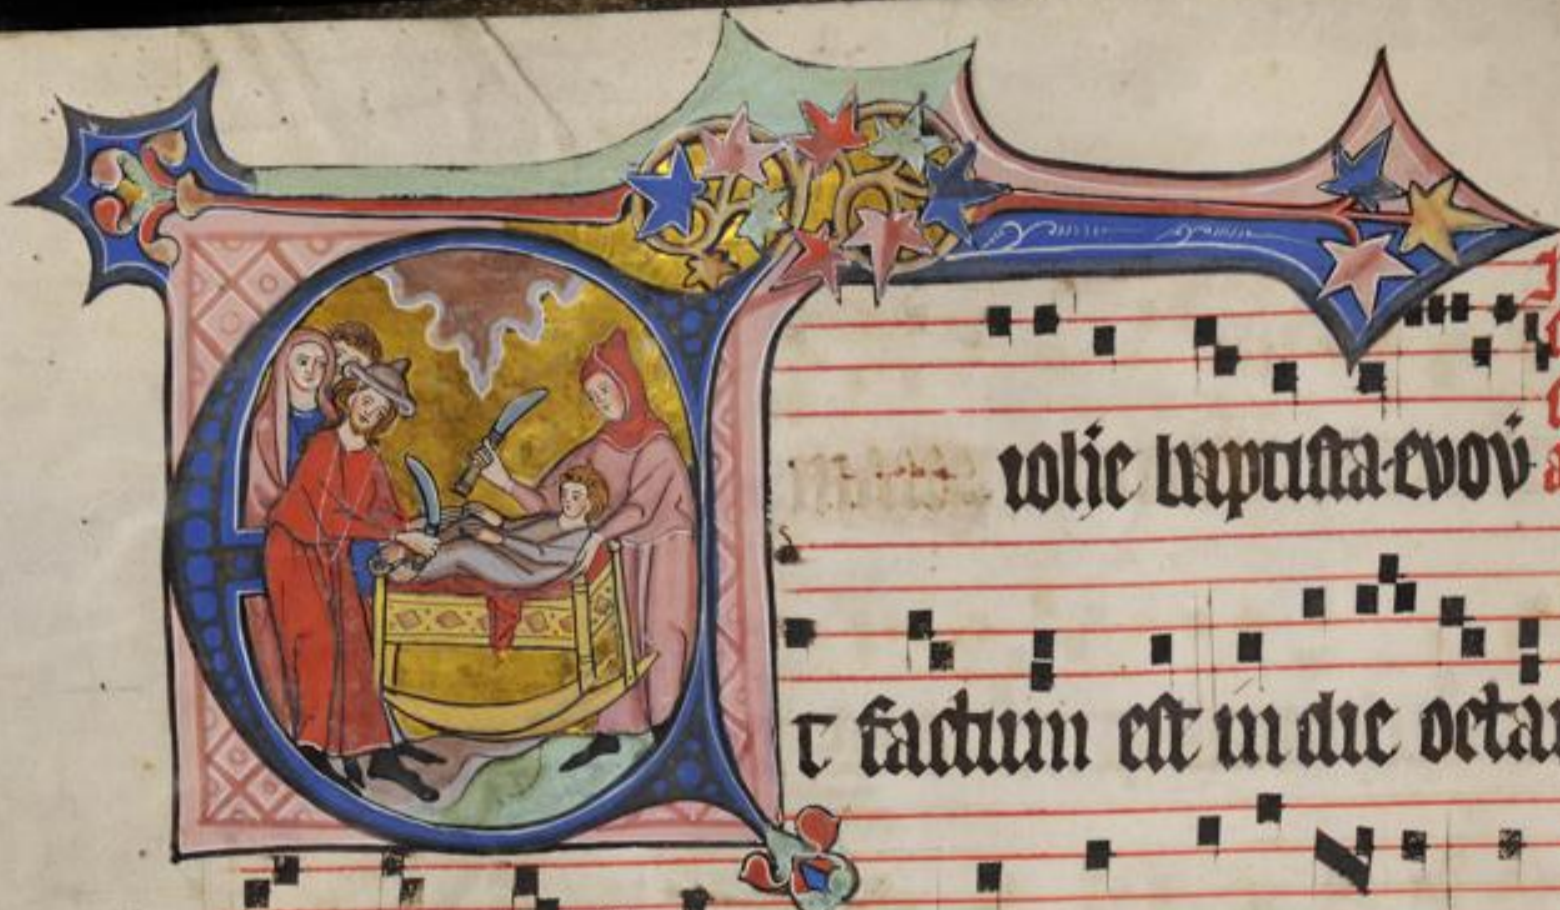 iohe baptista. evov
Et factum est in die octa